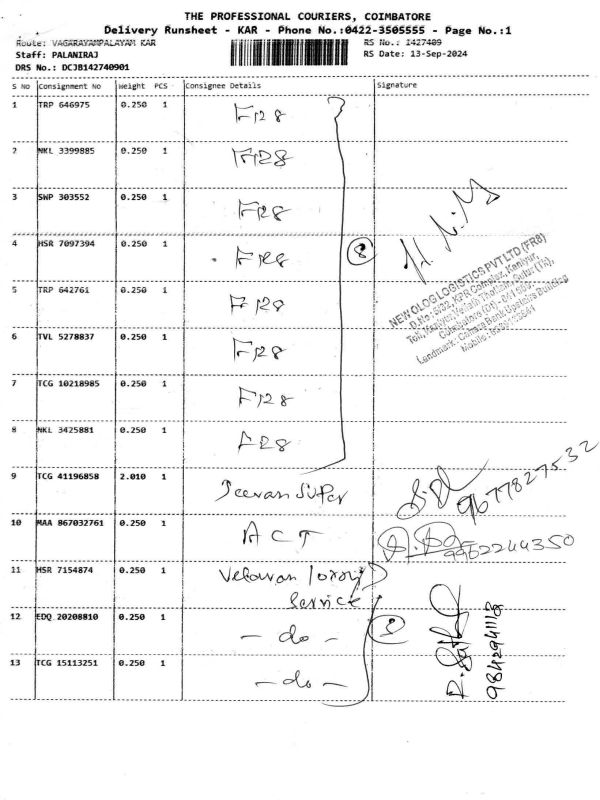 THE PROFESSIONAL COURIERS, COIMBATORE
Delivery Runsheet - KAR - Phone No.:0422-3505555 - Page No.:1
Route: VAGARAYAMPALAYAM KAR RS No.: 1427409
Staff: PALANIRAJ RS Date: 13-Sep-2024
DRS No.: DCJB142740901
S No Consignment No Weight PCS Consignee Details Signature
1 TRP 646975 0.250 1 FR8
2 NKL 3399885 0.250 1 FR8
3 SWP 303552 0.250 1 FR8
4 HSR 7097394 0.250 1 FR8
8
NEW OLOG LOGISTICS PVT LTD (FR8)
D.No: KPR Complex, Kaniyur,
5 TRP 642761 0.250 1 FR8
Landmark: Canara Bank Upstairs Building
6 TVL 5278837 0.250 1 FR8
7 TCG 10218985 0.250 1 FR8
8 NKL 3425881 0.250 1 FR8
9 TCG 41196858 2.010 1 Jeevan Super 9677827532
10 MAA 867032761 0.250 1 ACT 9962244350
11 HSR 7154874 0.250 1 Velavan Service
12 EDQ 20208810 0.250 1 - do -
9842941118
13 TCG 15113251 0.250 1 - do -